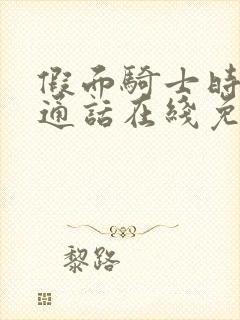 假面騎士時
通話在綫免
黎路